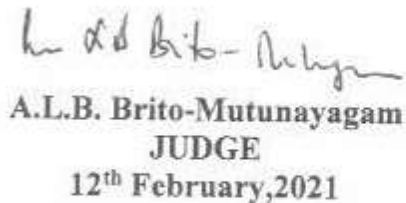 Brito-
A.L.B. Brito-Mutunayagam
JUDGE
12th February,2021